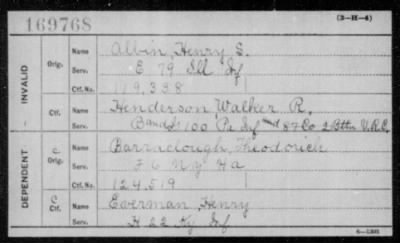 169768
(3-H-4)
INVALID
Orig.
Name Albin, Henry S.
Serv. E 79 Ill Inf
Ctf. No. 119,338
Ctf.
Name Henderson, Walker R.
Serv. Band 100 Pa Inf and 87 Co 2 Bttn V.R.C.
DEPENDENT
C.
Orig.
Name Barraclough, Theodorick
Serv. F 6 Ny Ha
Ctf. No. 124,519
C
Ctf.
Name Everman, Henry
Serv. H 22 Ky Inf